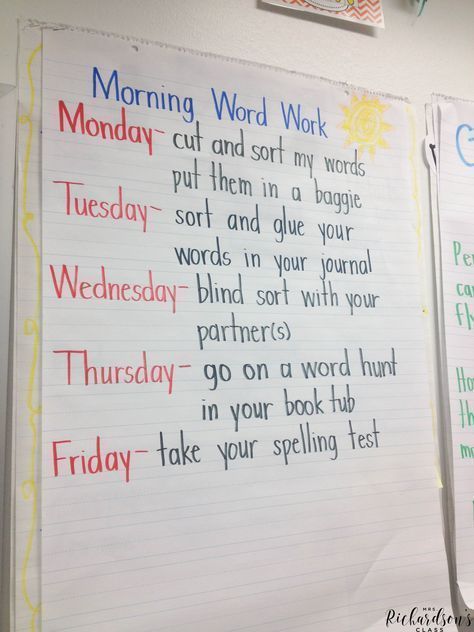 Morning Word Work
Monday- cut and sort my words
put them in a baggie
Tuesday- sort and glue your
words in your journal
Wednesday- blind sort with your
partner(s)
Thursday- go on a word hunt
in your book tub
Friday- take your spelling test
G
Pe
ca
fl
Ho
th
mo
MRS.
Richardson's
CLASS